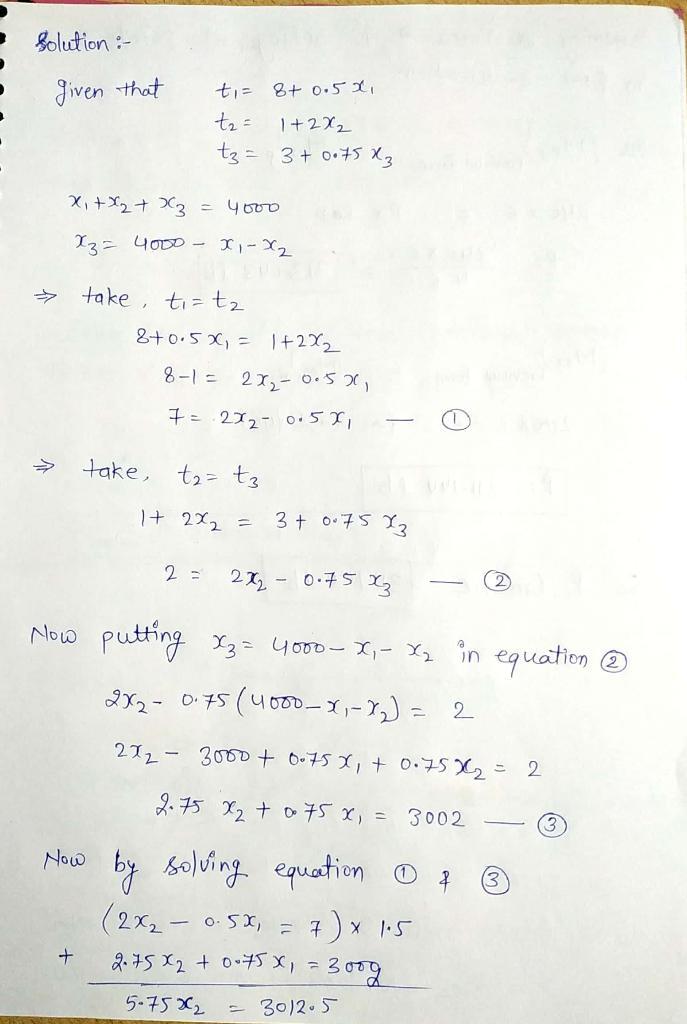 Solution :-
Given that t₁ = 8 + 0.5 x₁
t₂ = 1 + 2x₂
t₃ = 3 + 0.75 x₃
x₁ + x₂ + x₃ = 4000
x₃ = 4000 - x₁ - x₂
⇒ take, t₁ = t₂
8 + 0.5 x₁ = 1 + 2x₂
8 - 1 = 2x₂ - 0.5 x₁
7 = 2x₂ - 0.5 x₁ — ①
⇒ take, t₂ = t₃
1 + 2x₂ = 3 + 0.75 x₃
2 = 2x₂ - 0.75 x₃ — ②
Now putting x₃ = 4000 - x₁ - x₂ in equation ②
2x₂ - 0.75 (4000 - x₁ - x₂) = 2
2x₂ - 3000 + 0.75 x₁ + 0.75 x₂ = 2
2.75 x₂ + 0.75 x₁ = 3002 — ③
Now by solving equation ① & ③
(2x₂ - 0.5x₁ = 7) × 1.5
+ 2.75 x₂ + 0.75 x₁ = 3009
5.75 x₂ = 3012.5